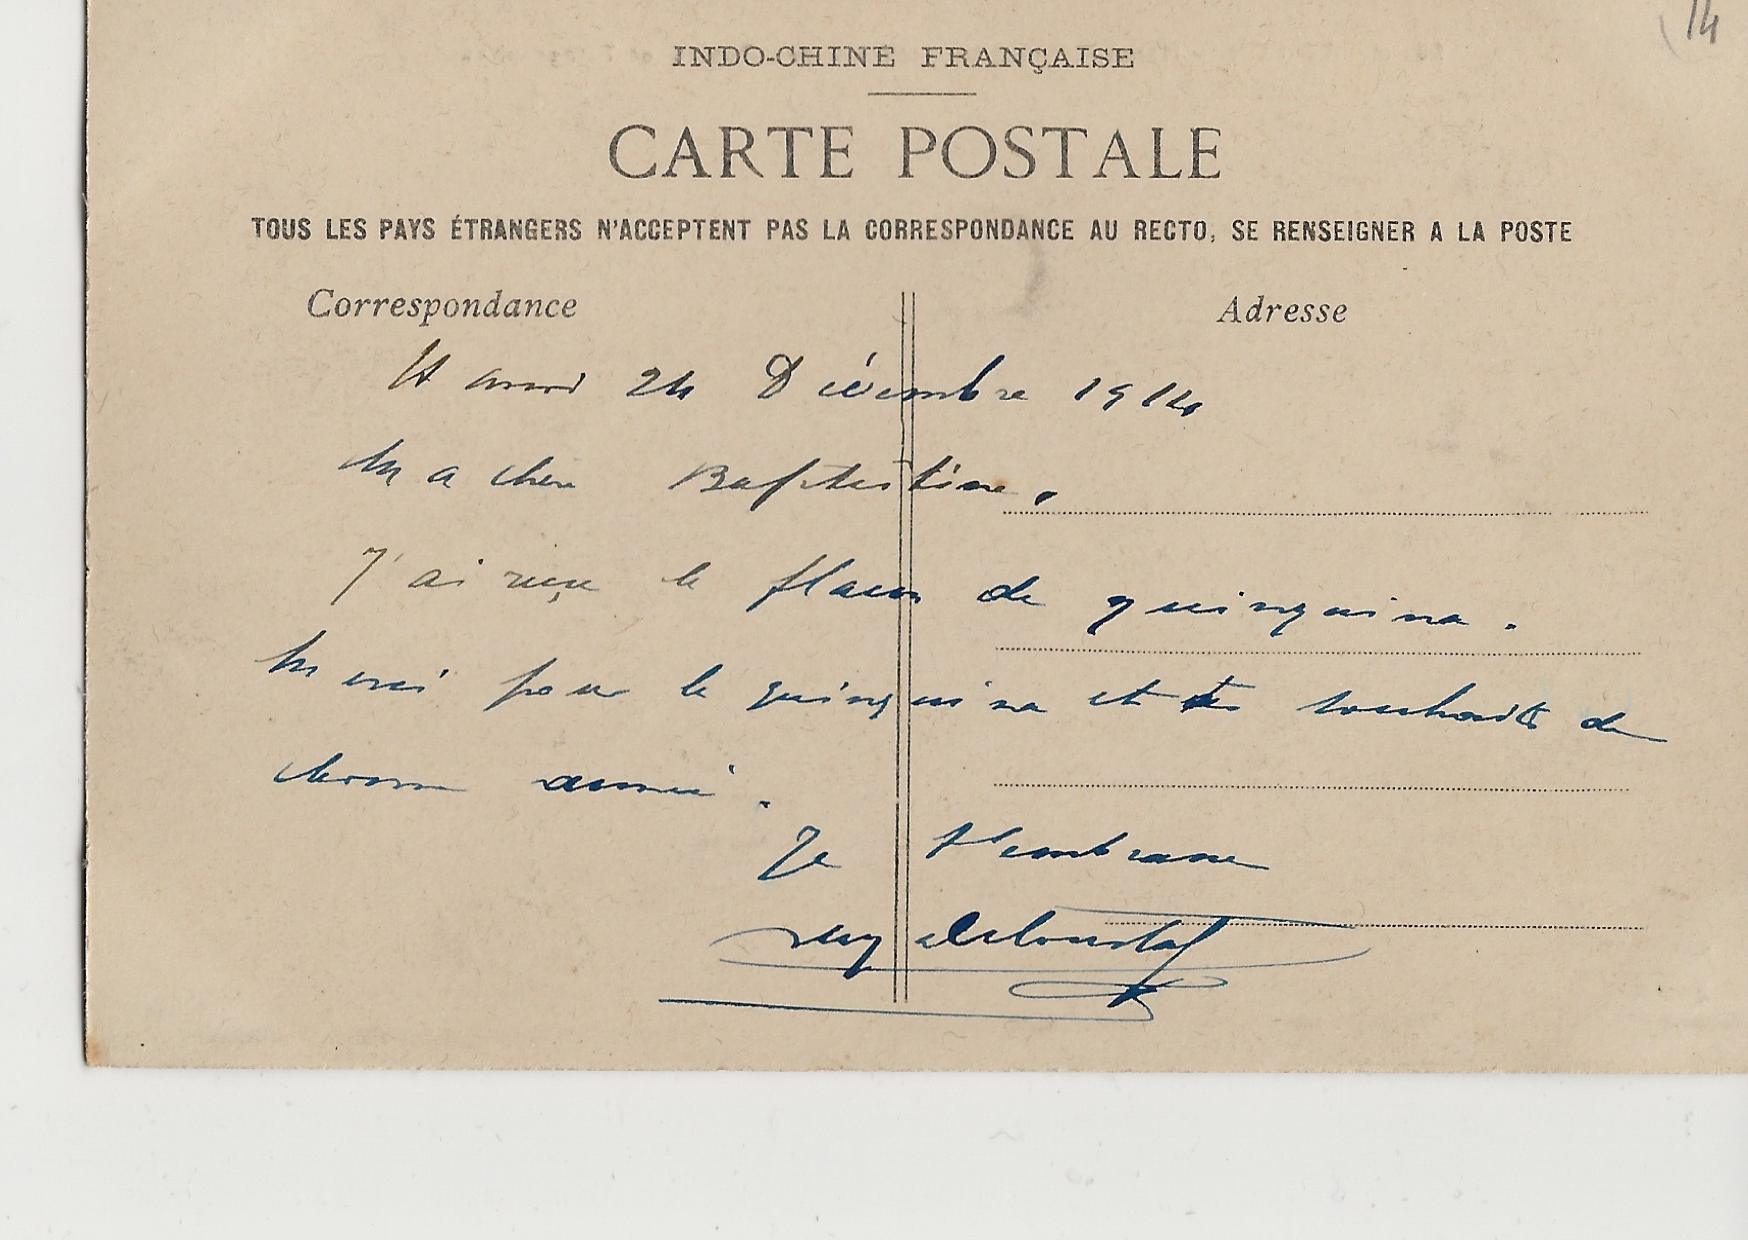 14
INDO-CHINE FRANÇAISE
CARTE POSTALE
TOUS LES PAYS ÉTRANGERS N'ACCEPTENT PAS LA CORRESPONDANCE AU RECTO, SE RENSEIGNER A LA POSTE
Correspondance
Adresse
Hanoi 24 Décembre 1914
Ma chère Baptistine.
J'ai reçu le flacon de quinquina.
Merci pour le quinquina et tes souhaits de
bonne année.
Je t'embrasse